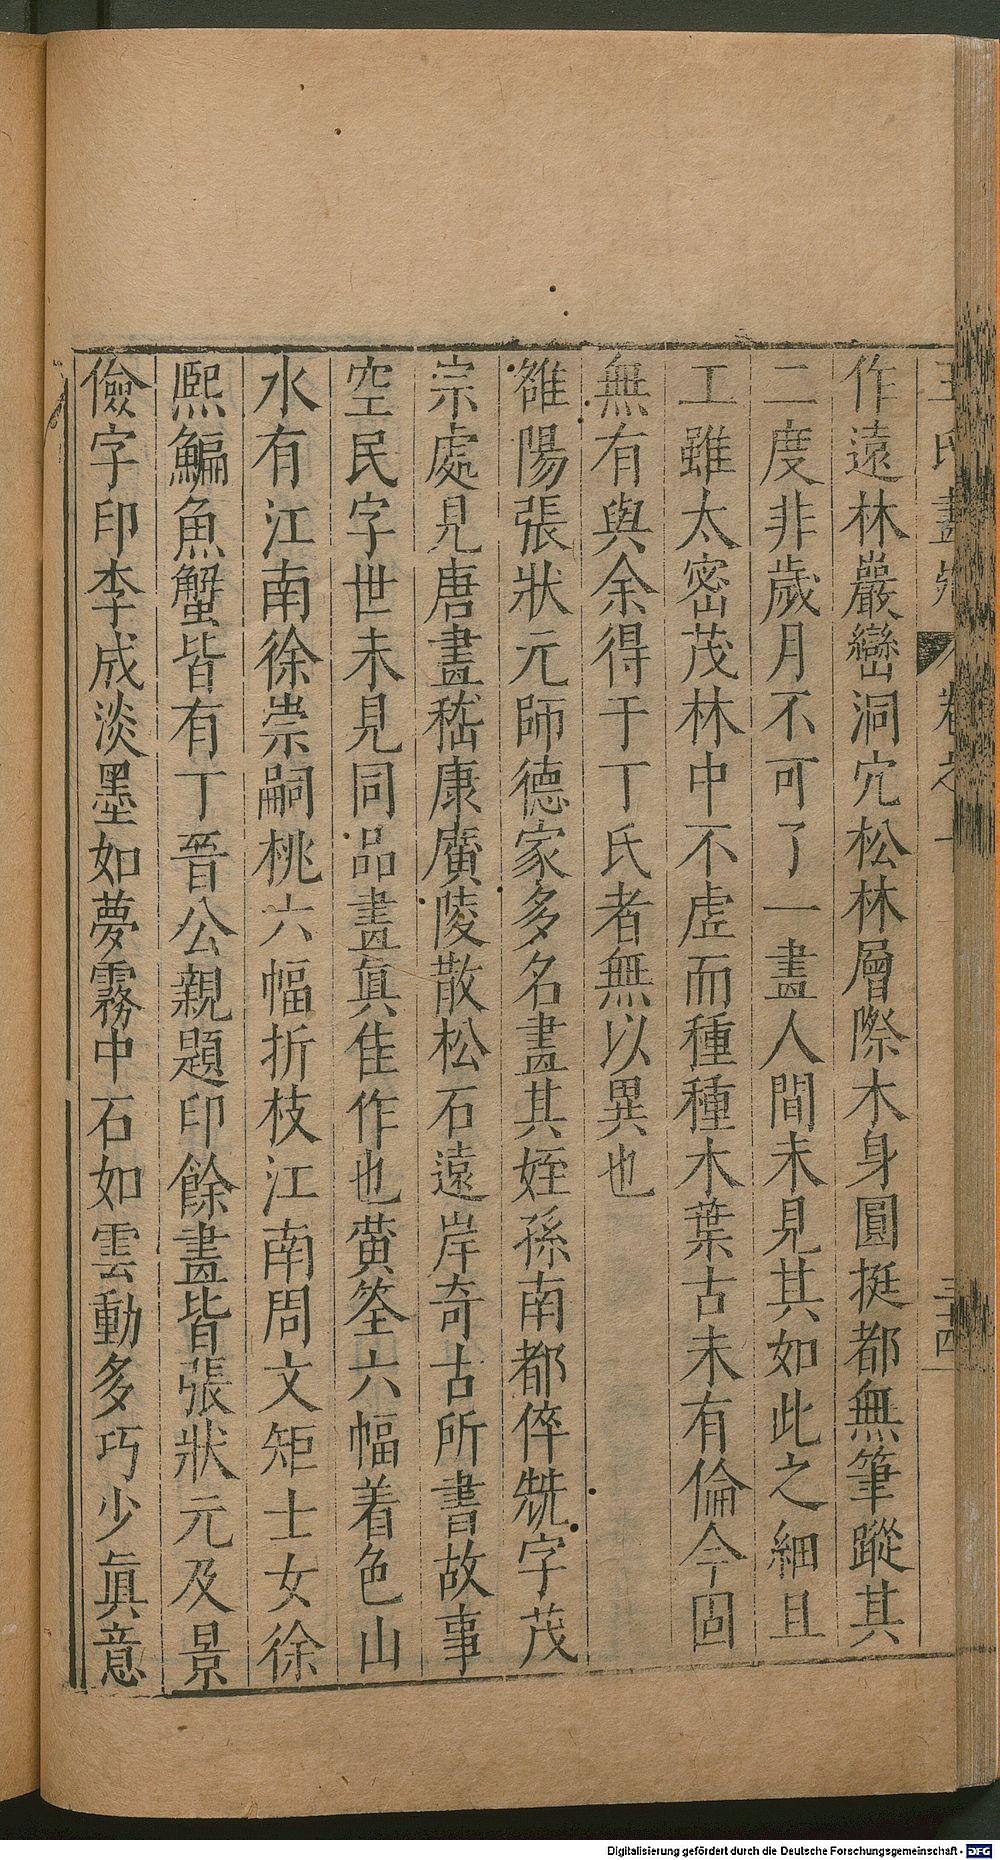 王氏畫苑 卷之十 三十四
作遠林巖巒洞穴松林層際木身圓挺都無筆蹤其
二度非歲月不可了一畫人間未見其如此之細且
工雖太密茂林中不虛而種種木葉古未有倫今固
無有與余得于丁氏者無以異也
雒陽張狀元師德家多名畫其姪孫南都倅兟字茂
宗處見唐畫嵇康廣陵散松石遠岸奇古所書故事
空民字世未見同品畫眞佳作也黃筌六幅着色山
水有江南徐崇嗣桃六幅折枝江南周文矩士女徐
熙鯿魚蟹皆有丁晉公親題印餘畫皆張狀元及景
儉字印李成淡墨如夢霧中石如雲動多巧少眞意
Digitalisierung gefördert durch die Deutsche Forschungsgemeinschaft - DFG